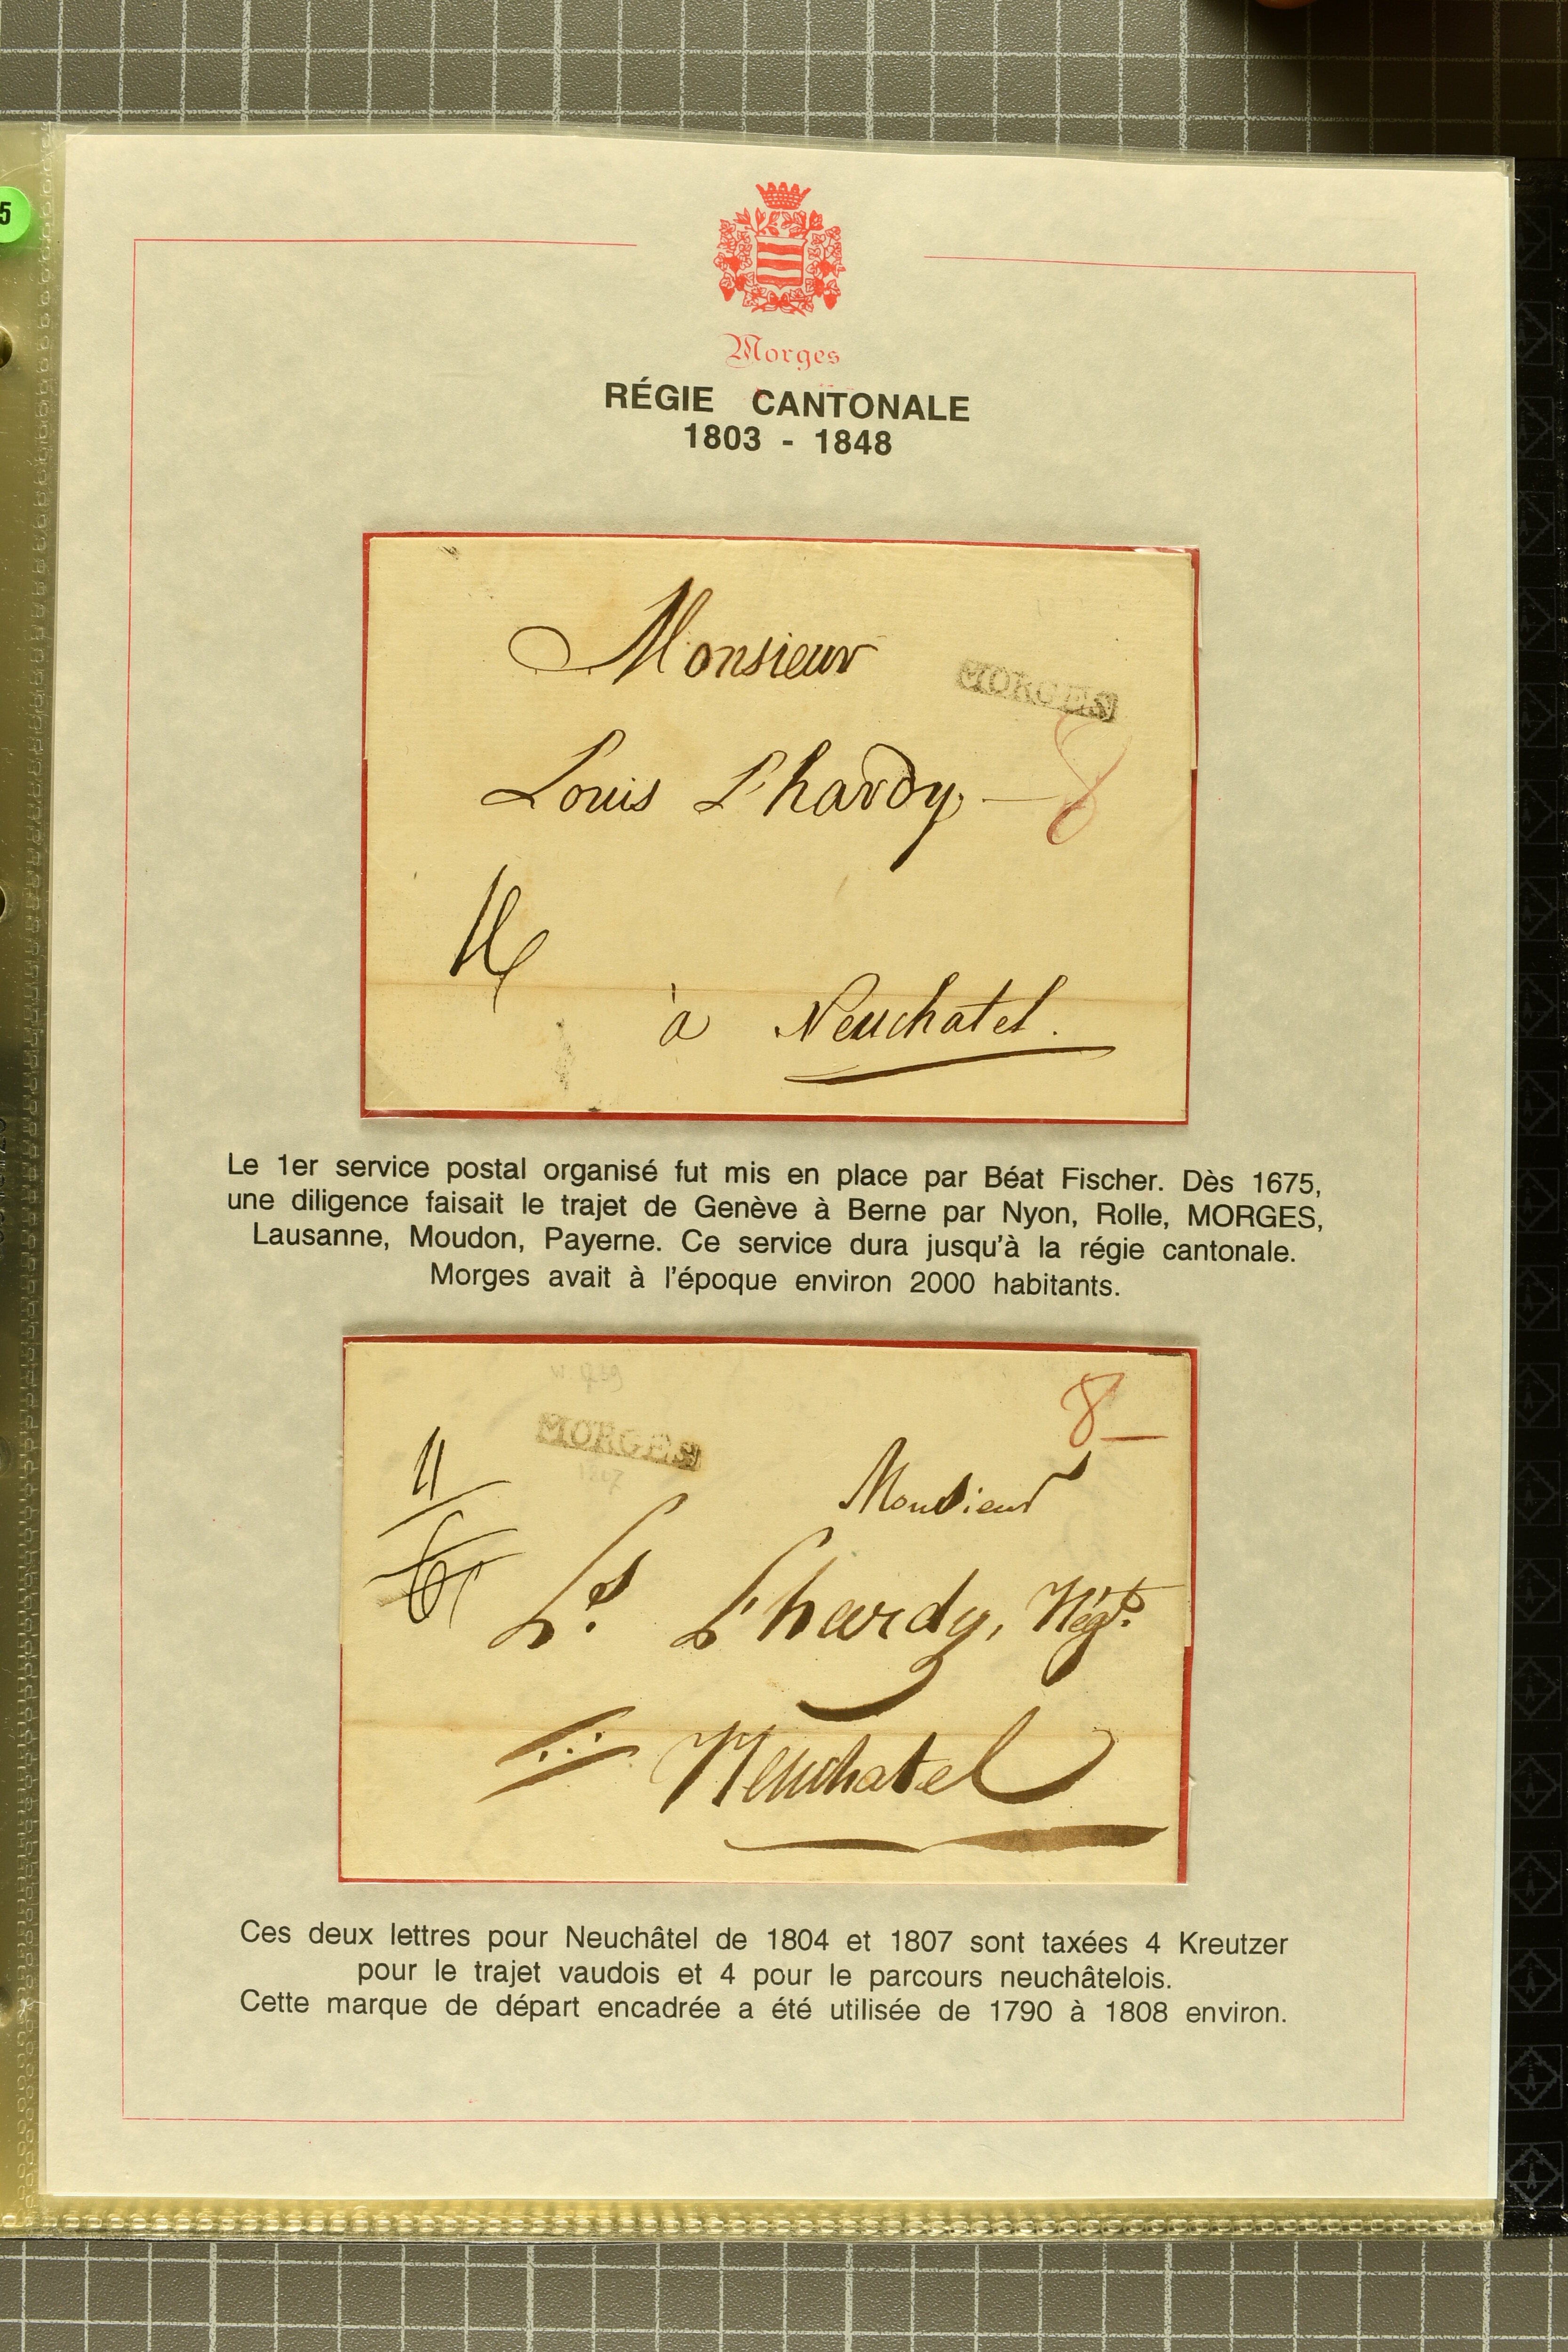 5
Morges
RÉGIE CANTONALE
1803 - 1848
Monsieur
MORGES
Louis L'hardy
8
à Neuchatel.
Le 1er service postal organisé fut mis en place par Béat Fischer. Dès 1675,
une diligence faisait le trajet de Genève à Berne par Nyon, Rolle, MORGES,
Lausanne, Moudon, Payerne. Ce service dura jusqu'à la régie cantonale.
Morges avait à l'époque environ 2000 habitants.
8
MORGES
1807
Monsieur
Ls. L'hardy, Négt.
Neuchatel
Ces deux lettres pour Neuchâtel de 1804 et 1807 sont taxées 4 Kreutzer
pour le trajet vaudois et 4 pour le parcours neuchâtelois.
Cette marque de départ encadrée a été utilisée de 1790 à 1808 environ.